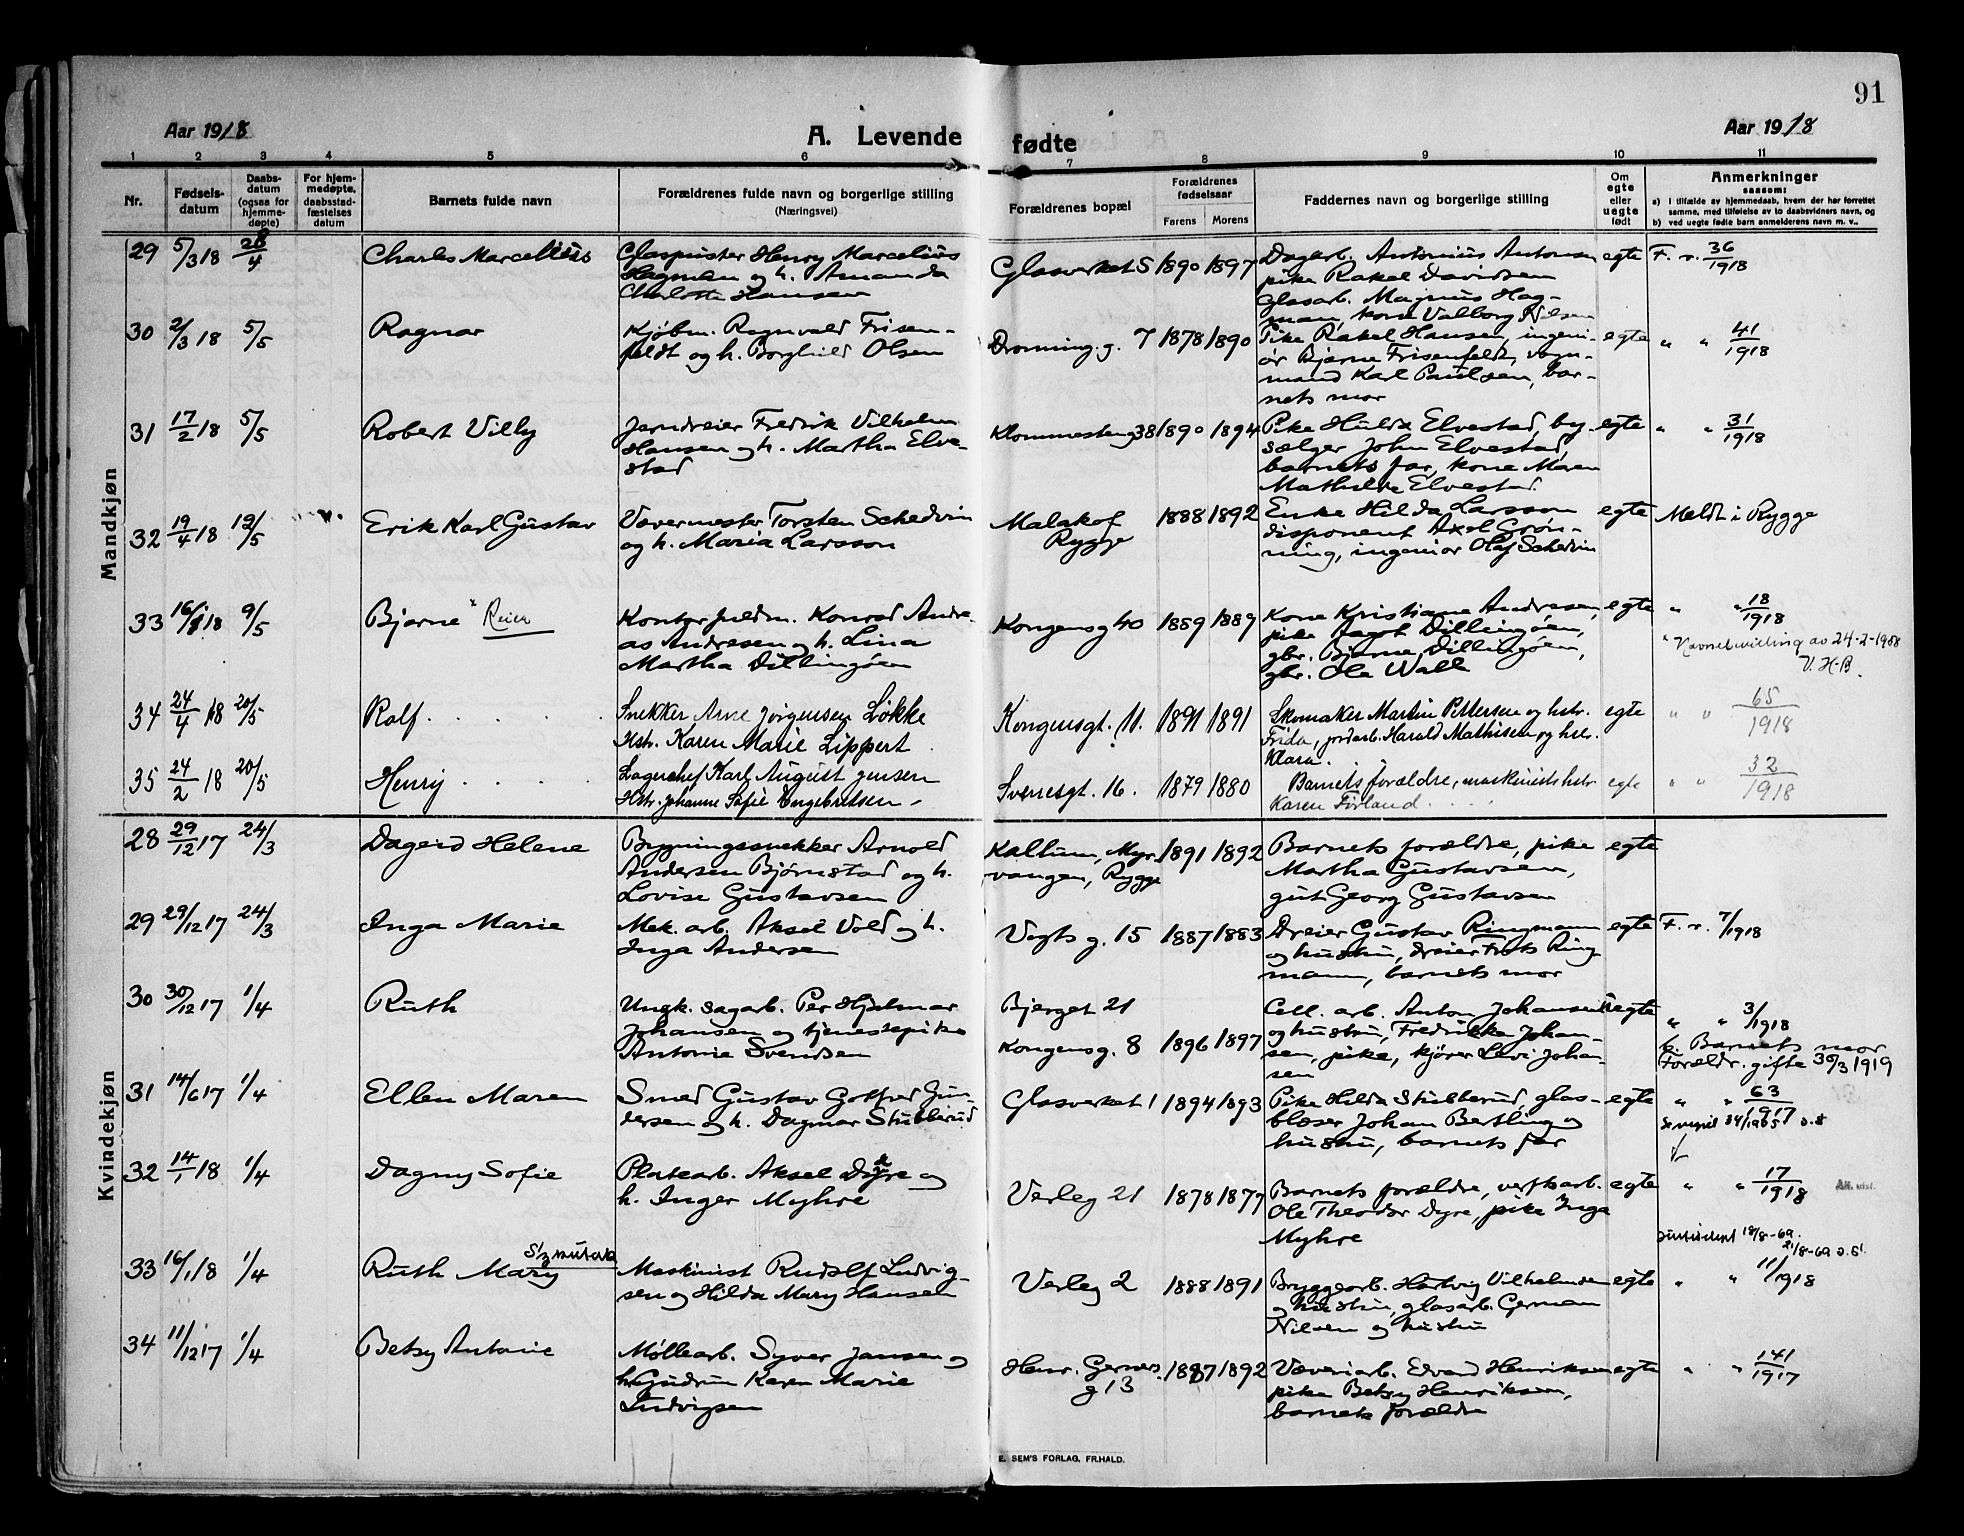 91
Aar 1918 A. Levende fødte Aar 1918
1 2 3 4 5 6 7 8 9 10 11
Nr.
Fødsels-
datum
Daabs-
datum
(ogsaa for
hjemme-
døpte)
For hjem-
medøpte,
daabsstad-
fæstelses
datum
Barnets fulde navn
Forældrenes fulde navn og borgerlige stilling
(Næringsvei)
Forældrenes bopæl
Forældrenes
fødselsaar
Farens Morens
Faddernes navn og borgerlige stilling
Om
egte
eller
uegte
født
Anmerkninger
saasom:
a) i tilfælde av hjemmedaab, hvem der har forrettet
samme, med tilføielse av to daabsvidners navn, og
b) ved uegte fødte barn anmelderens navn m. v..
Mandkjøn
29 5/3 18 28/4 Charles Marcellius
Glaspuster Henry Marcelius
Hagman og h. Amanda
Charlotte Hansen
Glasverket 5 1890 1897
Dagarb. Antonius Antonsen
pike Rakel Davidsen
glasarb. Magnus Hag-
man, kone Valborg Nilsen
egte F. r. 36/1918
30 2/3 18 5/5 Ragnar
Kjøbm. Ragnvald Frisen-
feldt og h. Borghild Olsen
Dronning.g. 7 1878 1890
Pike Rakel Hansen, ingeni-
ør Bjarne Frisenfeldt, vogn-
mand Karl Paulsen, bar-
nets mor
egte " " 41/1918
31 17/2 18 5/5 Robert Villy
Jerndreier Fredrik Vilhelm
Hansen og h. Martha Elve-
stad
Klommesteng 38 1890 1894
Pike Hulda Elvestad, by-
sælger John Elvestad,
barnets far, kone Maren
Mathilde Elvestad.
egte " " 31/1918
32 19/4 18 12/5 Erik Karl Gustav
Vævermester Torsten Schedvin
og h. Maria Larsson
Malakof
Rygge
1888 1892
Enke Hilda Larsson
disponent Axel Grøn-
ning, ingeniør Olaf Schedvin
egte Meldt i Rygge
33 16/1 18 9/5 Bjarne x Reier
Kontorfuldm. Konrad Andre-
as Andresen og h. Lina
Martha Dillingøen
Kongensg 40 1889 1889
Kone Kristiane Andresen,
pike Dillingøen,
gbr. Bjarne Dillingøen,
gbr. Ole Wall
egte " " 18/1918
x Navnebevilling av 24-2-1958
V. H-B.
34 24/4 18 20/5 Rolf
Snekker Arne Jørgensen Løkke
Hstr. Karen Marie Lippert
Kongensgt. 11. 1891 1891
Skomaker Martin Pettersen og hstr.
Frida, jordarb. Harald Mathisen og hstr.
Klara.
egte " " 65/1918
35 24/2 18 20/5 Henry
Lagerchef Karl August Jensen
Hstr. Johanne Sofie Engebretsen
Sverresgt. 16. 1879 1880
Barnets forældre, maskinists hstr
Karen Førland
egte " " 32/1918
Kvindekjøn
28 29/12 17 24/3 Dagrid Helene
Bygningssnekker Arnold
Andersen Bjørnstad og h.
Lovise Gustavsen
Kallum, Myr-
vangen, Rygge
1891 1892
Barnets forældre, pike
Martha Gustavsen,
gut Georg Gustavsen
egte
29 29/12 17 24/3 Inga Marie
Mek. arb. Aksel Vold og h.
Inga Andersen
Vogts g. 15 1887 1883
Dreier Gustav Ringmann
og hustru, dreier Frits Ring
mann, barnets mor
egte F. r. 7/1918
30 30/12 17 1/4 Ruth
Ungk. sagarb. Per Hjalmar
Johansen og tjenestepike
Antonie Svendsen
Bjerget 21
Kongensg. 8 1896 1897
Cell. arb. Anton Johansen
og hustru, Fredrikke Johan-
sen, pike, kjører Levi Johan-
sen
uegte " " 3/1918
b. Barnets mor
Forældr. gifte 30/3 1919
31 14/6 17 1/4 Ellen Maren
Smed Gustav Gotfred Gun-
dersen og h. Dagmar Stubberud
Glasverket 1 1894 1893
Pike Hilda Stubberud glas-
blæser Johan Bertling og
hustru, barnets far
egte " " 63/1917
32 14/1 18 1/4 Dagny Sofie
Platearb. Aksel Dyre og
h. Inger Myhre
Verleg 21 1878 1877
Barnets forældre, verftsarb.
Ole Theodor Dyre, pike Inga
Myhre
egte " " 17/1918
33 16/1 18 1/4 Ruth Mary
Maskinist Rudolf Ludvig-
sen og Hilda Mary Hansen
Verleg 2 1888 1891
Bryggearb. Hartvig Vilhelmsen
og hustru, glasarb. German
Nilsen og hustru
egte " " 11/1918
34 11/12 17 1/4 Betsy Antonie
Møllearb. Syver Jansen og
h. Gudrun Karen Marie
Ludvigsen
Henr. Gernes.
g 13
1887 1892
Væveriarb. Edvard Henriksen
pike Betsy Henriksen,
barnets forældre
egte " " 141/1917
E. SEM'S FORLAG, FR.HALD.